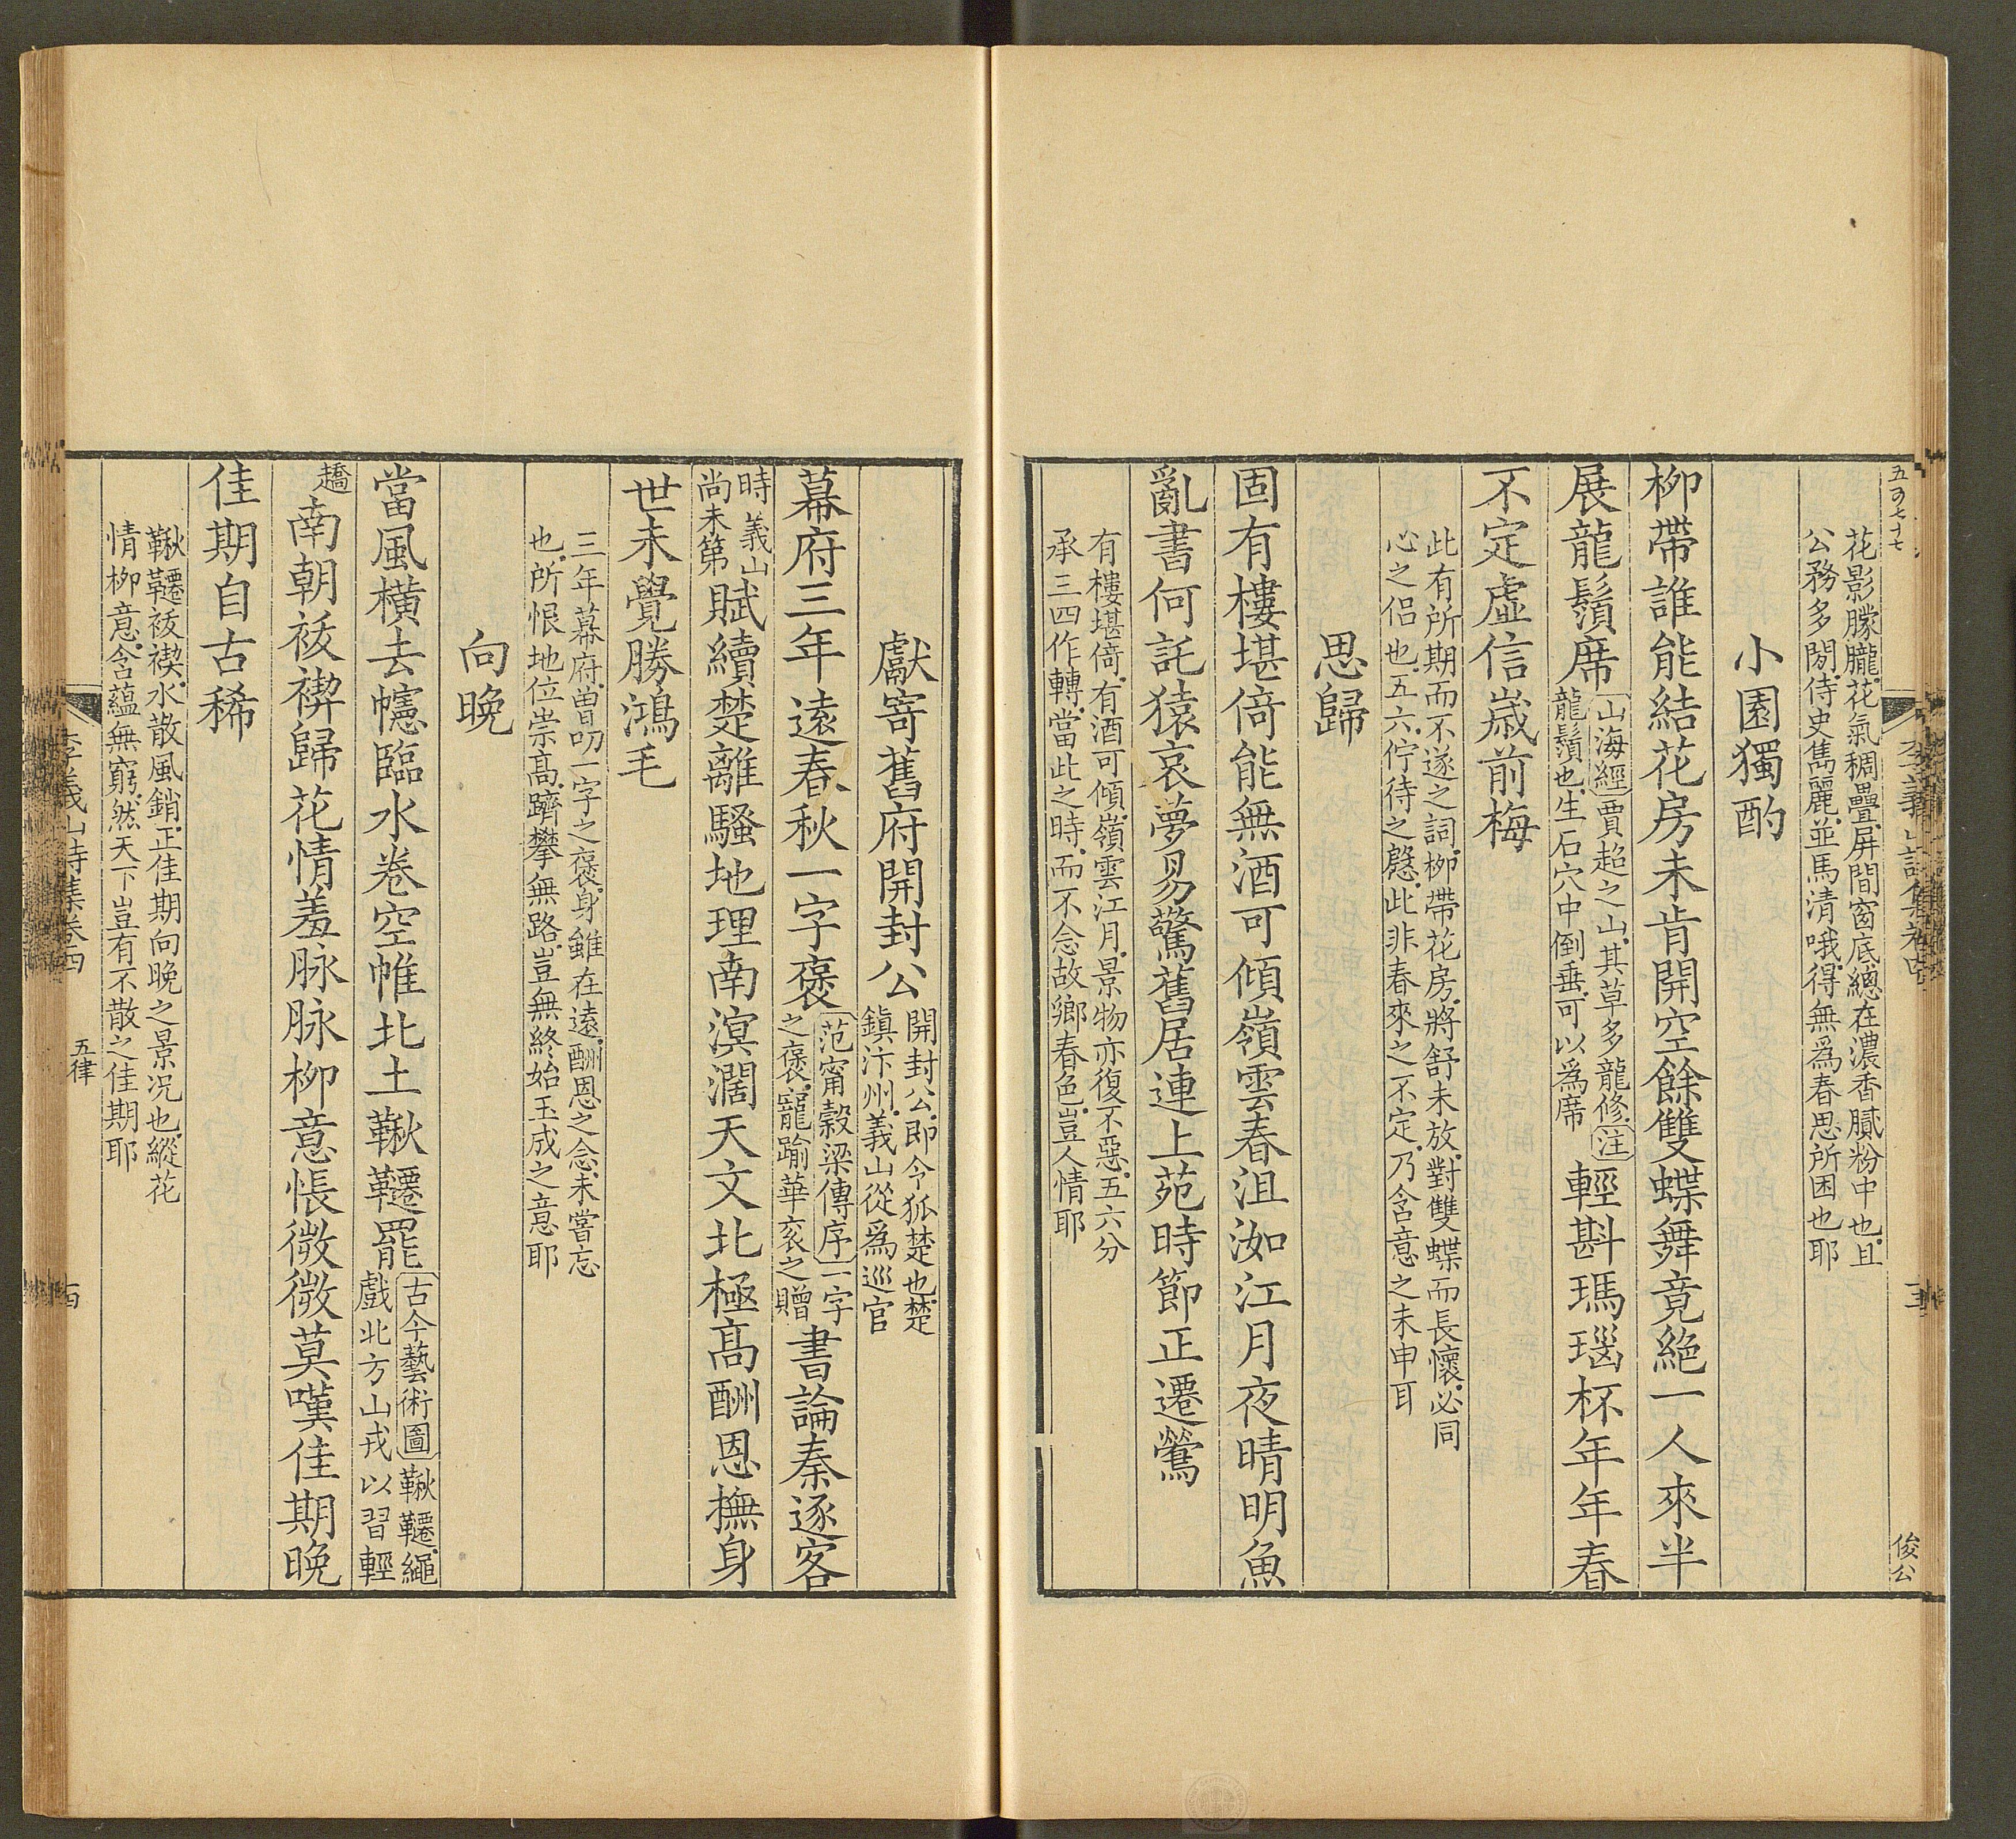 五百七十七
李義山詩集卷四
俊公
花影朦朧花氣稠疊屏間窗底總在濃香膩粉中也且
公務多閒侍史雋麗並馬清哦得無爲春思所困也耶
小園獨酌
柳帶誰能結花房未肯開空餘雙蝶舞竟絕一人來半
展龍鬚席
山海經賈超之山其草多龍修注
龍鬚也生石穴中倒垂可以爲席
輕斟瑪瑙杯年年春
不定虛信歲前梅
此有所期而不遂之詞柳帶花房將舒未放對雙蝶而長懷必同
心之侶也五六佇待之慇此非春來之不定乃含意之未申耳
思歸
固有樓堪倚能無酒可傾嶺雲春沮洳江月夜晴明魚
亂書何託猿哀夢易驚舊居連上苑時節正遷鶯
有樓堪倚有酒可傾嶺雲江月景物亦復不惡五六分
承三四作轉當此之時而不念故鄉春色豈人情耶
獻寄舊府開封公
開封公即令狐楚也楚
鎮汴州義山從爲巡官
幕府三年遠春秋一字褒
范甯穀梁傳序一字
之褒寵踰華袞之贈
書論秦逐客
時義山
尚未第
賦續楚離騷地理南溟濶天文北極高酬恩撫身
世未覺勝鴻毛
三年幕府曾叨一字之褒身雖在遠酬恩之念未嘗忘
也所恨地位崇高躋攀無路豈無終始玉成之意耶
向晚
當風橫去幰臨水卷空帷北土鞦韆罷
古今藝術圖鞦韆繩
戲北方山戎以習輕
趫
南朝祓禊歸花情羞脉脉柳意悵微微莫嘆佳期晚
佳期自古稀
鞦韆祓禊水散風銷正佳期向晚之景况也縱花
情柳意含蘊無窮然天下豈有不散之佳期耶
李義山詩集卷四
五律